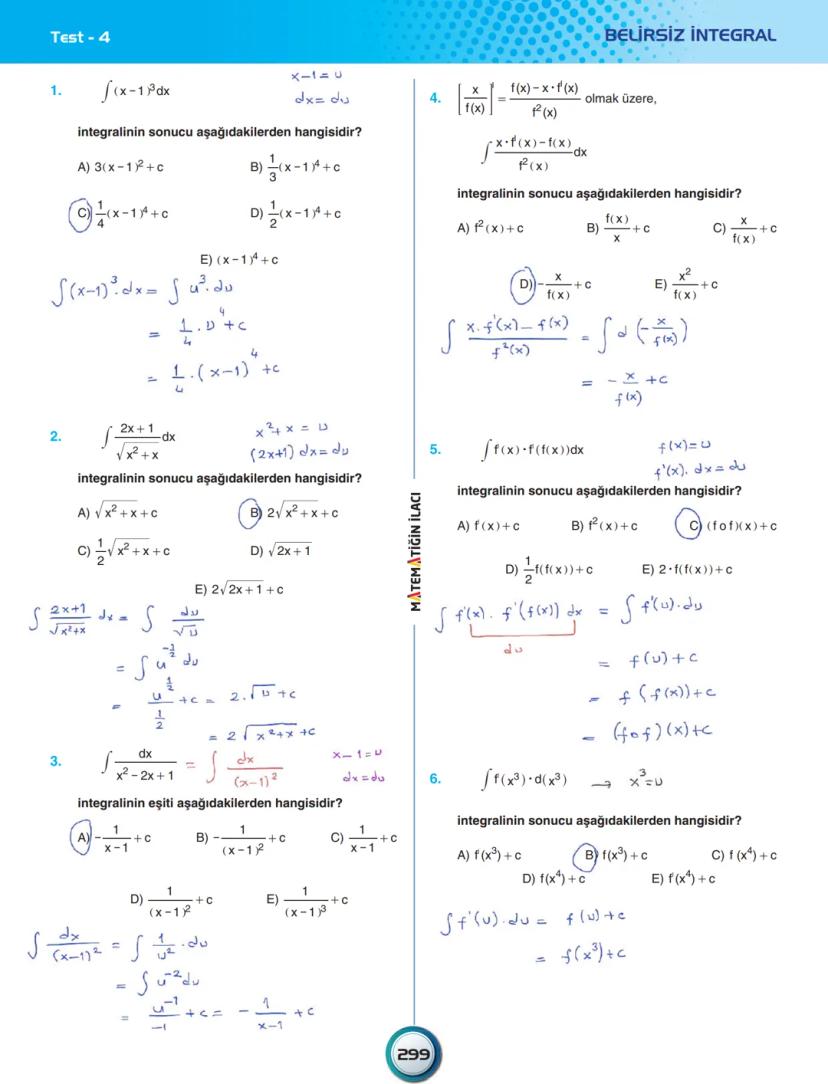 Test - 4
BELİRSİZ İNTEGRAL
1. ∫(x-1)³dx
x-1=u
dx=du
integralinin sonucu aşağıdakilerden hangisidir?
A) 3(x-1)²+c B) 1/3(x-1)⁴+c
C) 1/4(x-1)⁴+c D) 1/2(x-1)⁴+c
E) (x-1)⁴+c
∫(x-1)³.dx = ∫u³.du
= 1/4.u⁴+c
= 1/4.(x-1)⁴+c
2. ∫(2x+1)/√(x²+x) dx
x²+x = u
(2x+1)dx=du
integralinin sonucu aşağıdakilerden hangisidir?
A) √(x²+x)+c B) 2√(x²+x)+c
C) 1/2√(x²+x)+c D) √(2x+1)
E) 2√(2x+1)+c
∫(2x+1)/√(x²+x) dx = ∫du/√u
= ∫u^(-1/2) du
= u^(1/2)/(1/2) +c = 2.√u+c
= 2√(x²+x)+c
3. ∫dx/(x²-2x+1) = ∫dx/(x-1)²
x-1=u
dx=du
integralinin eşiti aşağıdakilerden hangisidir?
A) -1/(x-1)+c B) -1/(x-1)²+c C) 1/(x-1)+c
D) 1/(x-1)²+c E) 1/(x-1)³+c
∫dx/(x-1)² = ∫1/u².du
= ∫u⁻²du
= u⁻¹/-1 +c = -1/(x-1) +c
MATEMATİĞİN İLACI
4. [x/f(x)]' = (f(x)-x·f'(x))/f²(x) olmak üzere,
∫(x·f'(x)-f(x))/f²(x) dx
integralinin sonucu aşağıdakilerden hangisidir?
A) f²(x)+c B) f(x)/x+c C) x/f(x)+c
D) -x/f(x)+c E) x²/f(x)+c
∫(x.f'(x)-f(x))/f²(x) = ∫d(-x/f(x))
= -x/f(x) +c
5. ∫f'(x)·f'(f(x))dx
f(x)=u
f'(x).dx=du
integralinin sonucu aşağıdakilerden hangisidir?
A) f(x)+c B) f²(x)+c C) (fof)(x)+c
D) 1/2f(f(x))+c E) 2·f(f(x))+c
∫f'(x).f'(f(x))dx = ∫f'(u).du
du
= f(u)+c
= f(f(x))+c
= (fof)(x)+c
6. ∫f'(x³)·d(x³) → x³=u
integralinin sonucu aşağıdakilerden hangisidir?
A) f'(x³)+c B) f(x³)+c C) f'(x⁴)+c
D) f(x⁴)+c E) f'(x⁴)+c
∫f'(u).du = f(u)+c
= f(x³)+c
299